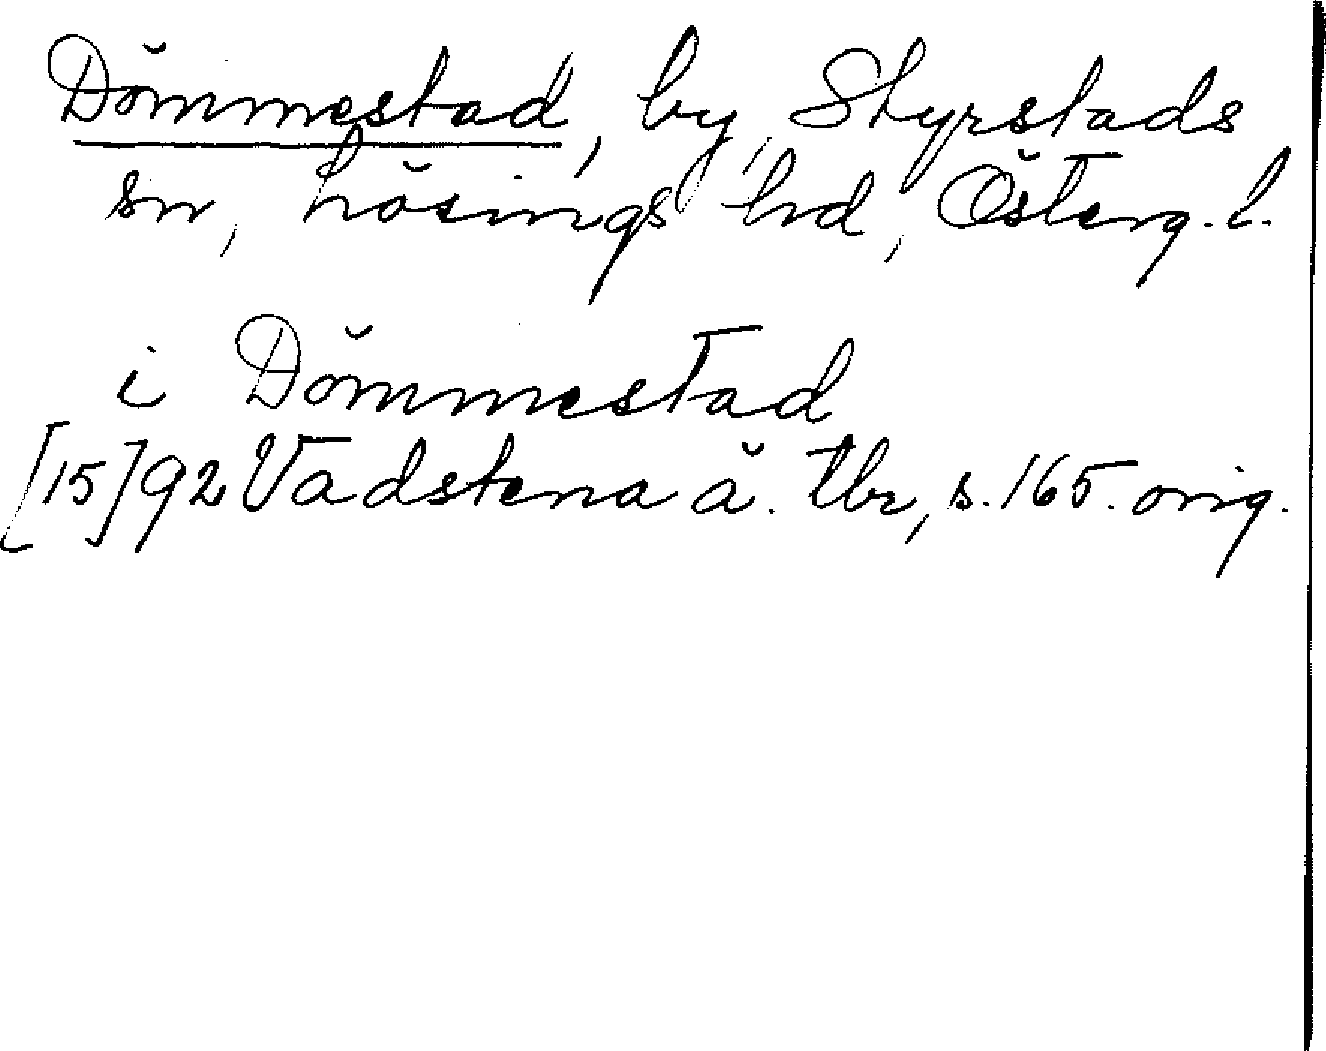 Dömmestad, by, Styrstads
sn, Lösings hd, Österg. l.
i Dömmestad
[15]92 Vadstena ä. tbr, s. 165. orig.